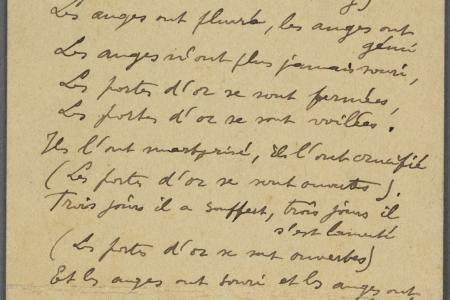 Les anges ont pleuré, les anges ont
gémi
Les anges n'ont plus jamais souri,
Les portes d'or se sont fermées,
Les portes d'or se sont voilées.
Ils l'ont mesprisé, ils l'ont crucifié
(Les portes d'or se sont ouvertes).
Trois jours il a souffert, trois jours il
s'est lamenté
(Les portes d'or se sont ouvertes)
Et les anges ont souri et les anges ont